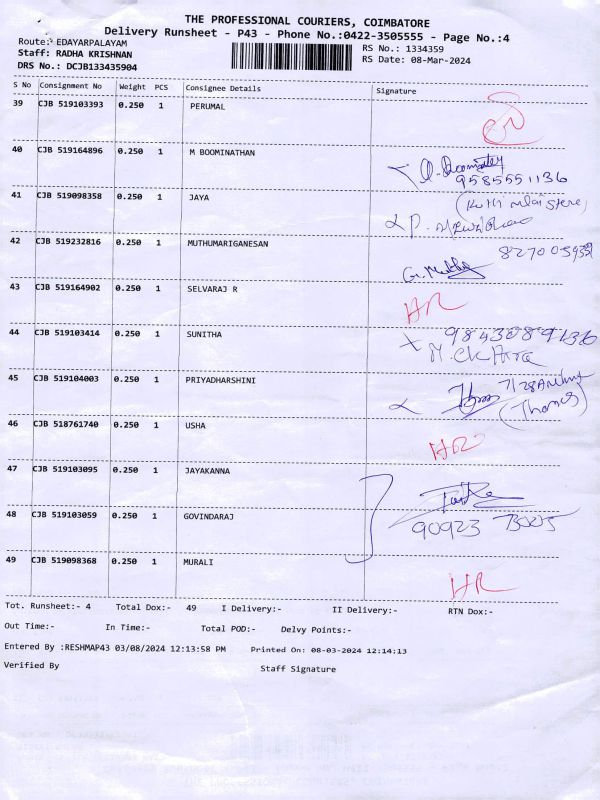 THE PROFESSIONAL COURIERS, COIMBATORE
Delivery Runsheet - P43 - Phone No.:0422-3505555 - Page No.:4
Route: EDAYARPALAYAM
RS No.: 1334359
Staff: RADHA KRISHNAN
RS Date: 08-Mar-2024
DRS No.: DCJB133435904
S No Consignment No Weight PCS Consignee Details Signature
39 CJB 519103393 0.250 1 PERUMAL
40 CJB 519164896 0.250 1 M BOOMINATHAN
9585551136
41 CJB 519098358 0.250 1 JAYA
42 CJB 519232816 0.250 1 MUTHUMARIGANESAN
43 CJB 519164902 0.250 1 SELVARAJ R HR
44 CJB 519103414 0.250 1 SUNITHA 9843089136
45 CJB 519104003 0.250 1 PRIYADHARSHINI
46 CJB 518761740 0.250 1 USHA
47 CJB 519103095 0.250 1 JAYAKANNA
48 CJB 519103059 0.250 1 GOVINDARAJ 90923
49 CJB 519098368 0.250 1 MURALI HR
Tot. Runsheet:- 4 Total Dox:- 49 I Delivery:- II Delivery:- RTN Dox:-
Out Time:- In Time:- Total POD:- Delvy Points:-
Entered By :RESHMAP43 03/08/2024 12:13:58 PM Printed On: 08-03-2024 12:14:13
Verified By Staff Signature